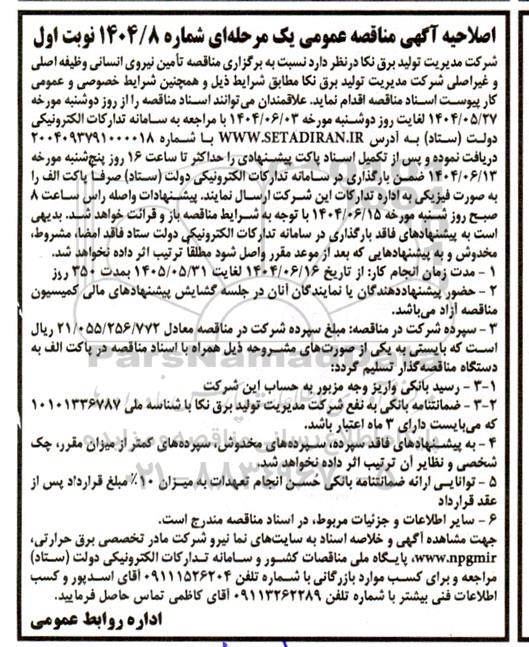 اصلاحیه آگهی مناقصه عمومی یک مرحله‌ای شماره ۱۴۰۴/۸ نوبت اول
شرکت مدیریت تولید برق نکا درنظر دارد نسبت به برگزاری مناقصه تأمین نیروی انسانی وظیفه اصلی
و غیراصلی شرکت مدیریت تولید برق نکا مطابق شرایط ذیل و همچنین شرایط خصوصی و عمومی
کار پیوست اسناد مناقصه اقدام نماید. علاقمندان می‌توانند اسناد مناقصه را از روز دوشنبه مورخه
۱۴۰۴/۰۵/۲۷ لغایت روز دوشنبه مورخه ۱۴۰۴/۰۶/۰۳ با مراجعه به سامانه تدارکات الکترونیکی
دولت (ستاد) به آدرس WWW.SETADIRAN.IR با شماره ۲۰۰۴۰۹۳۷۹۱۰۰۰۰۱۸
دریافت نموده و پس از تکمیل اسناد پاکت پیشنهادی را حداکثر تا ساعت ۱۶ روز پنج‌شنبه مورخه
۱۴۰۴/۰۶/۱۳ ضمن بارگذاری در سامانه تدارکات الکترونیکی دولت (ستاد) صرفاً پاکت الف را
به صورت فیزیکی به اداره تدارکات این شرکت ارسال نمایند. پیشنهادات واصله راس ساعت ۸
صبح روز شنبه مورخه ۱۴۰۴/۰۶/۱۵ با توجه به شرایط مناقصه باز و قرائت خواهد شد. بدیهی
است به پیشنهادهای فاقد بارگذاری در سامانه تدارکات الکترونیکی دولت ستاد فاقد امضا، مشروط،
مخدوش و به پیشنهادهایی که بعد از موعد مقرر واصل شود مطلقاً ترتیب اثر داده نخواهد شد.
۱ - مدت زمان انجام کار: از تاریخ ۱۴۰۴/۰۶/۱۶ لغایت ۱۴۰۵/۰۵/۳۱ بمدت ۳۵۰ روز
۲ - حضور پیشنهاددهندگان یا نمایندگان آنان در جلسه گشایش پیشنهادهای مالی کمیسیون
مناقصه آزاد می‌باشد.
۳ - سپرده شرکت در مناقصه: مبلغ سپرده شرکت در مناقصه معادل ۲۱/۰۵۵/۲۵۶/۷۷۲ ریال
است که بایستی به یکی از صورت‌های مشروحه ذیل همراه با اسناد مناقصه در پاکت الف به
دستگاه مناقصه‌گذار تسلیم گردد:
۳-۱ - رسید بانکی واریز وجه مزبور به حساب این شرکت
۳-۲ - ضمانتنامه بانکی به نفع شرکت مدیریت تولید برق نکا با شناسه ملی ۱۰۱۰۱۳۳۶۷۸۷
که می‌بایست دارای ۳ ماه اعتبار باشد.
۴ - به پیشنهادهای فاقد سپرده، سپرده‌های مخدوش، سپرده‌های کمتر از میزان مقرر، چک
شخصی و نظایر آن ترتیب اثر داده نخواهد شد.
۵ - توانایی ارائه ضمانتنامه بانکی حسن انجام تعهدات به میزان ۱۰٪ مبلغ قرارداد پس از
عقد قرارداد
۶ - سایر اطلاعات و جزئیات مربوط، در اسناد مناقصه مندرج است.
جهت مشاهده آگهی و خلاصه اسناد به سایت‌های نما نیرو شرکت مادر تخصصی برق حرارتی،
www.npgmir، پایگاه ملی مناقصات کشور و سامانه تدارکات الکترونیکی دولت (ستاد)
مراجعه و برای کسب موارد بازرگانی با شماره تلفن ۰۹۱۱۱۵۲۶۲۰۴ آقای اسدپور و کسب
اطلاعات فنی بیشتر با شماره تلفن ۰۹۱۱۳۲۶۲۲۸۹ آقای کاظمی تماس حاصل فرمایید.
اداره روابط عمومی
ParsNamadData
۰۲۱-۸۸۳۴۹۶۷۰